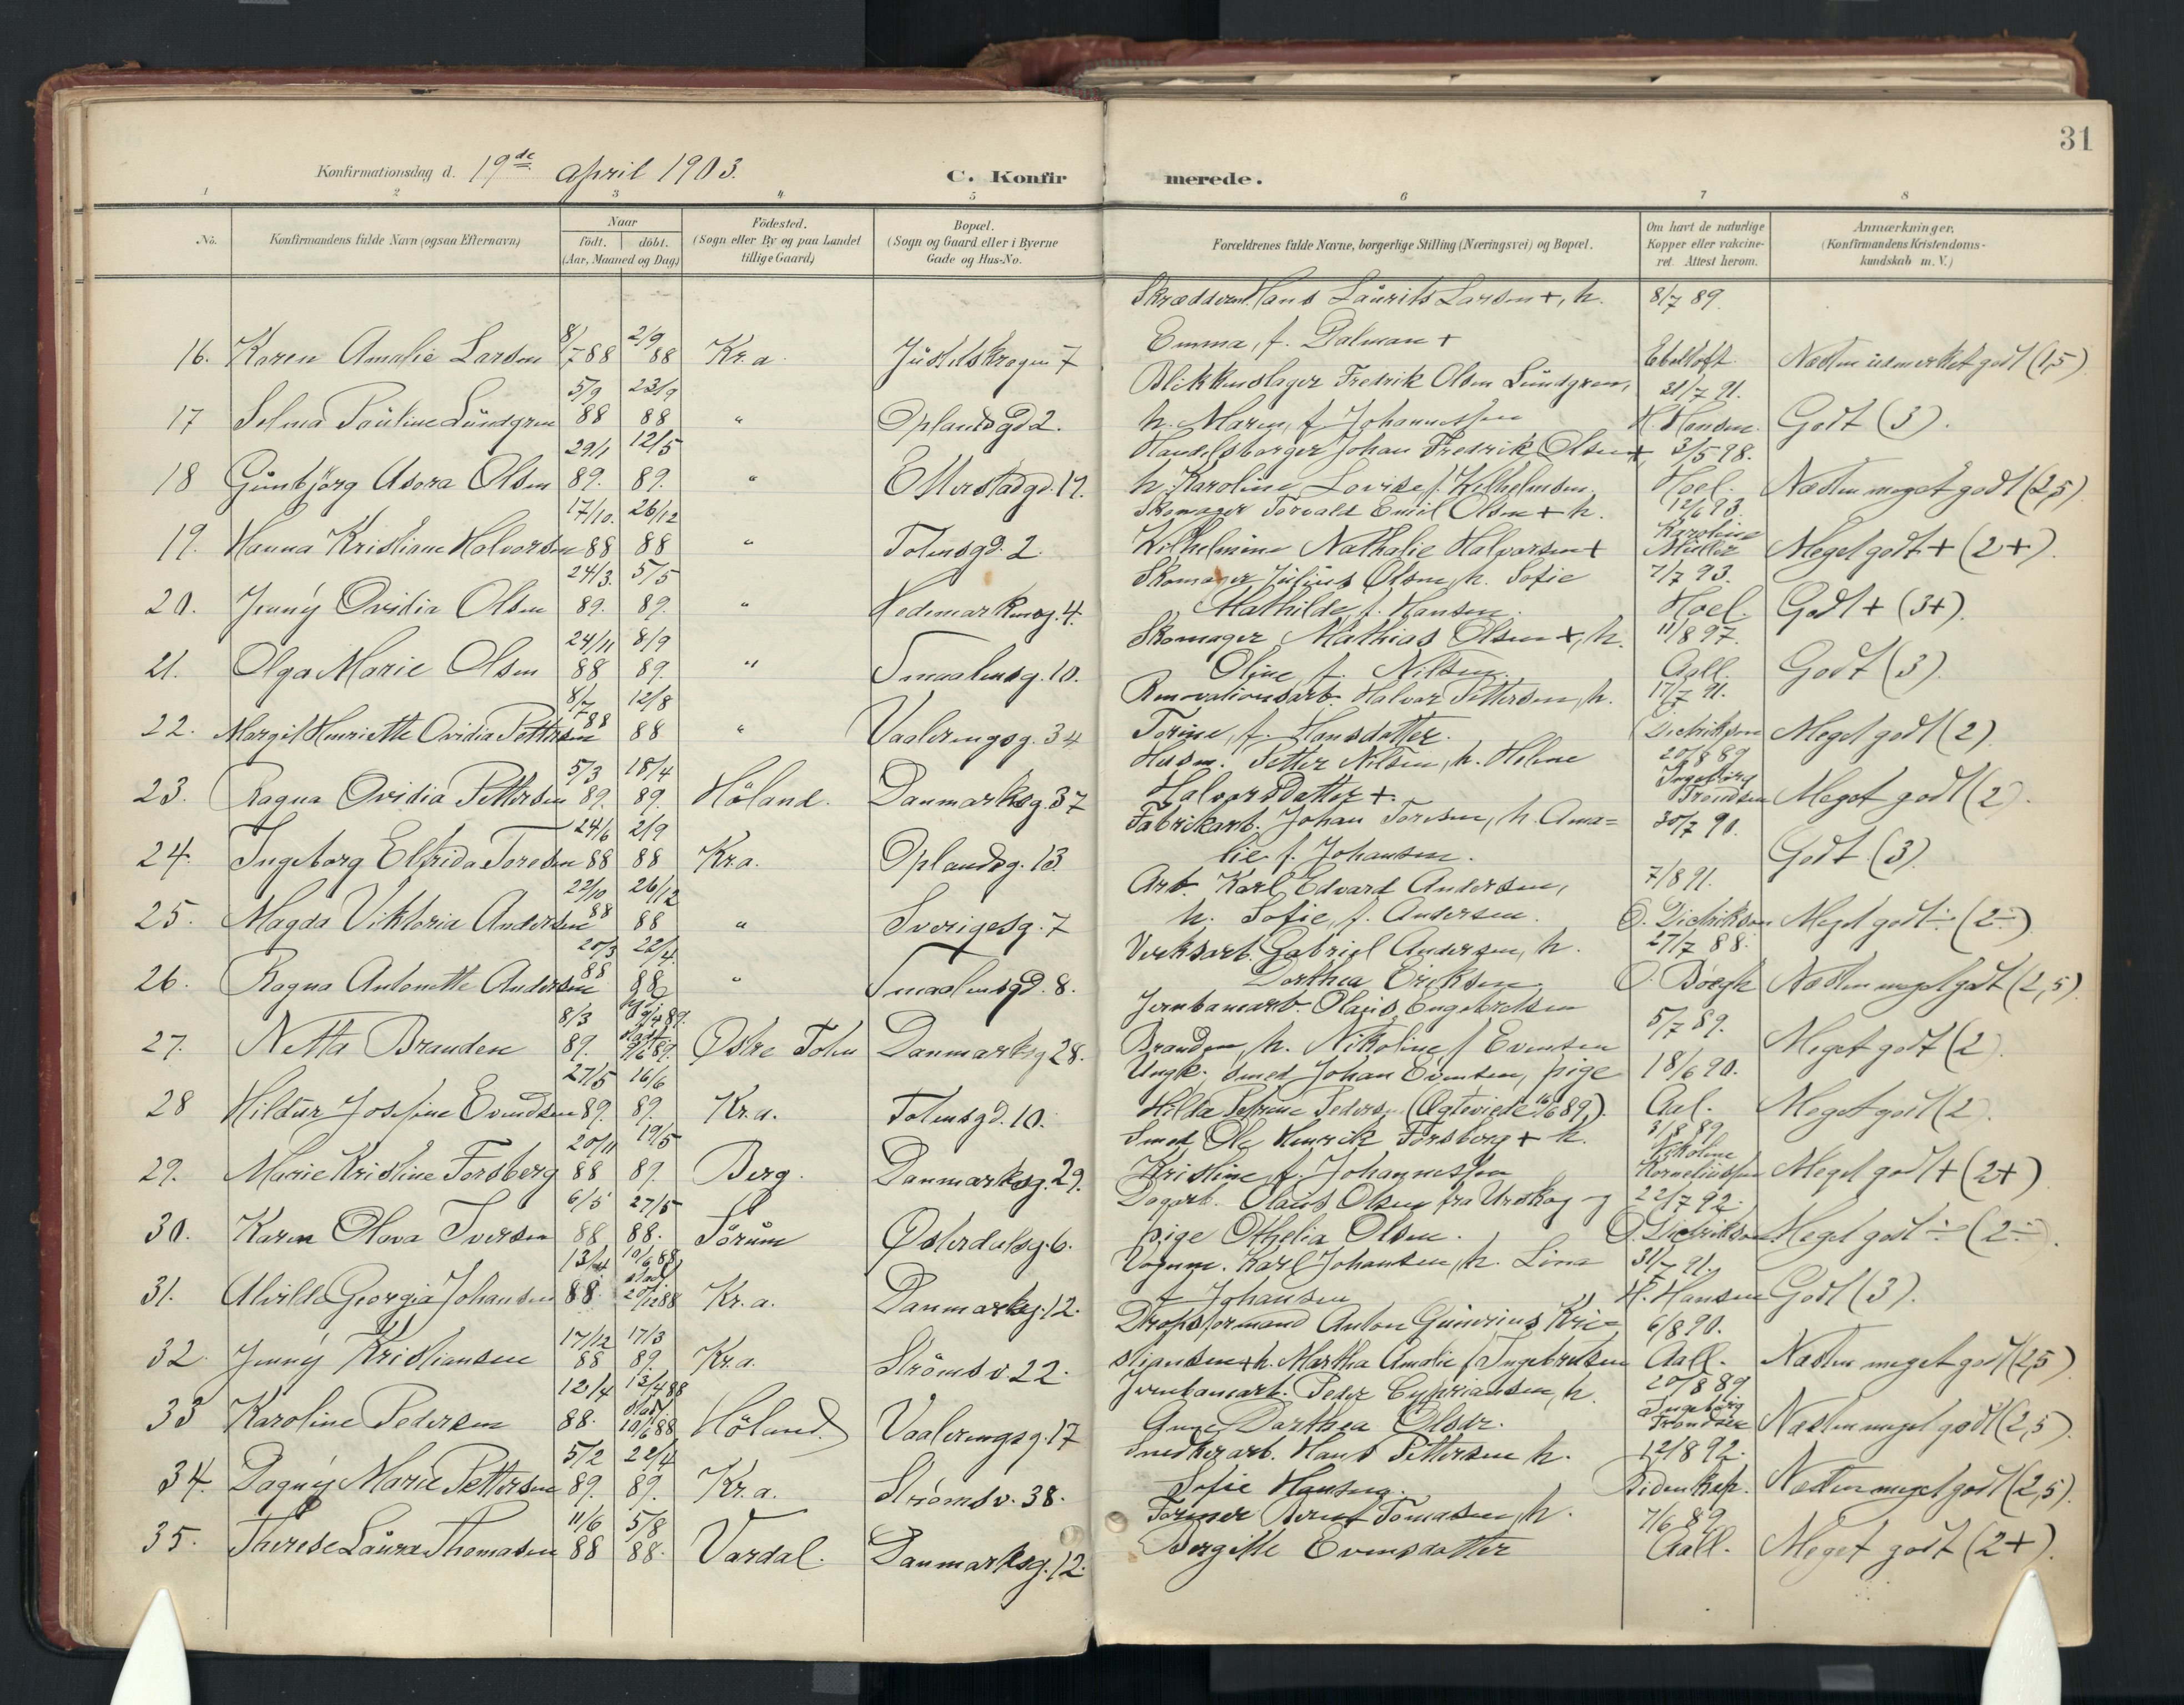 31
Konfirmationsdag d. 19de april 1903.
C. Konfirmerede.
1 2 3 4 5 6 7 8
No.
Konfirmandens fulde Navn (ogsaa Efternavn)
Naar
födt. döbt.
(Aar, Maaned og Dag)
Födested.
(Sogn eller By og paa Landet
tillige Gaard)
Bopæl.
(Sogn og Gaard eller i Byerne
Gade og Hus-No.
Forældrenes fulde Navne, borgerlige Stilling (Næringsvei) og Bopæl.
Om havt de naturlige
Kopper eller vakcine-
ret. Attest herom.
Anmærkninger.
(Konfirmandens Kristendoms-
kundskab m. V.)
Hans Laurits Larsen +, h. 8/7 89.
8/7 2/9 Emma, f. Dalman +
16. Karen Amalie Larsen 88 88 Kr.a. 7 Ebeltoft Næsten udmerket godt (1,5)
5/9 23/9 Blikkenslager Fredrik Olsen Lundgren, 31/7 91.
17 Selma Pauline Lundgren 88 88 " Oplandsgd 2. h. Maren, f. Johannessen H. Hansen. Godt (3).
29/1 12/5 Handelsborger Johan Fredrik Olsen + 3/5 98.
18 Gunbjörg Asora Olsen 89. 89. " Etterstadgd. 17. h. Karoline Lovise f. Wilhelmsen. Hoel. Næsten meget godt (2,5)
17/10. 26/12 Skomager Torvald Emil Olsen + h. 12/6 93.
19. Hanna Kristiane Halvorsen 88 88 " Totensgd. 2. Wilhelmine Nathalie Halvorsen + Karoline Müller Meget godt + (2+).
24/3. 5/5 Skomager Julius Olsen, h. Sofie 7/7 93.
20. Jenny Ovidia Olsen 89. 89. " Hedemarkensg. 4. Mathilde, f. Hansen. Hoel. Godt + (3+).
24/11 8/9 Skomager Mathias Olsen +, h. 11/8 97.
21. Olga Marie Olsen 88 89. " Smaalensg. 10. Oline, f. Nilsen. Aall. Godt (3).
8/7 12/8 Renovationsarb. Halvor Pettersen, h. 17/7 91.
22. Margit Henriette Ovidia Pettersen 88 88 " Vaalerengsg. 34 Torine, f. Hansdatter. Dietrikson Meget godt (2).
5/3 18/4 Husm. Petter Nilsen, h. Helene 20/8 89
23. Ragna Ovidia Pettersen 89. 89. Höland. Danmarksg. 37 Halvorsdatter +. Ingeborg Trondsen Meget godt (2).
24/6 2/9 Fabrikarb. Johan Toresen, h. Ama= 30/7 90.
24. Ingeborg Elfrida Toresen 88 88 Kr.a. Oplandsg. 13. lie f. Johansen. Godt (3).
22/10 26/12 Arb. Karl Edvard Andersen, 7/8 91.
25. Magda Viktoria Andersen 88 88 " Sverigesg. 7 h. Sofie, f. Andersen. O. Dietrikson Meget godt ÷ (2÷)
20/3 22/4. Verksarb. Gabriel Andersen, h. 27/7 88.
26. Ragna Antonette Andersen 88 88 " Smaalensgd. 8. Dorthea Eriksen O. Boegh Næsten meget godt (2,5).
8/3 Jernbanearb. Olaus Engebretsen 5/7 89.
27. Netta Branden 89. 9/6 89. Östre Toten Danmarksg 28. Branden, h. Nikoline f. Evensen Meget godt (2).
27/5 16/6 Ungk. smed Johan Evensen, pige 18/6 90.
28 Hildur Josefine Evendsen 89. 89. Kr.a. Totensgd. 10. Hilda Petrine Peders. (Ægteviede 16/6 89). Aal. Meget godt (2).
20/11 19/5 Smed Ole Henrik Forsberg + h. 31/8 89
29. Marie Kristine Forsberg 88 89. Berg. Danmarksg. 29. Kristine, f. Johannessen Nikoline Korneliussen Meget godt + (2+)
6/5 27/5 Dagarb. Olaus Olsen fra Urskog og 22/7 92.
30. Karen Olava Iversen 88 88. Sörum Österdalsg. 6. pige Othelia Olsen. O. Dietrikson Meget godt ÷ (2÷).
13/4 10/6 88 Vognm. Karl Johansen, h. Lina 31/7 91.
31. Alvilde Georgia Johansen 88. 20/12 88 Kr.a. Danmarksg. 12. f. Johansen H. Hansen Godt (3).
17/12 17/3 Dropsformand Anton Gunerius Kri= 6/8 90.
32. Jenny Kristiansen 88 89. Kr.a. Strömsv. 22. stiansen + h. Martha Amalie f. Ingebretsen Aall. Næsten meget godt (2,5)
12/4 13/4 88 Jernbanearb. Peder Cyprianssen, h. 20/8 89
33 Karoline Pedersen 88. 10/6 88 Höland Vaalerengsg. 17 Anne Dorthea Olsdr. Ingeborg Trondsen Næsten meget godt (2,5).
5/2 22/4 Snedkerarb. Hans Pettersen h. 12/8 92.
34. Dagny Marie Pettersen 89. 89. Kr.a. Strömsv. 38. Sofie Hansen. Næsten meget godt (2,5).
11/6 5/8 Former Bernt Tomasen, h. 7/6 89.
35. Therese Laura Thomasen 88 88. Vardal. Danmarksg. 12. Bergitte Evensdatter Aall. Meget godt (2+).